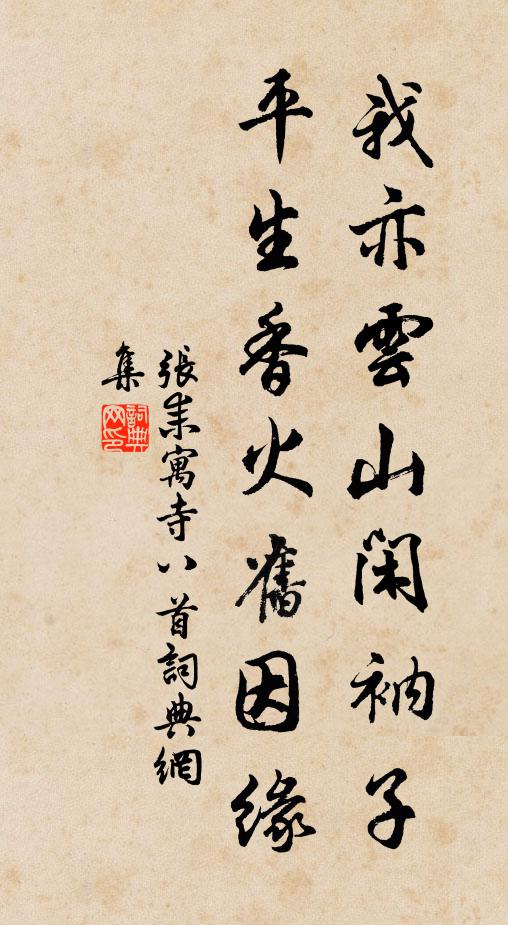 我亦雲山閑衲子
平生香火舊因緣
張耒寓寺八首詞典網
集
詞典
网印